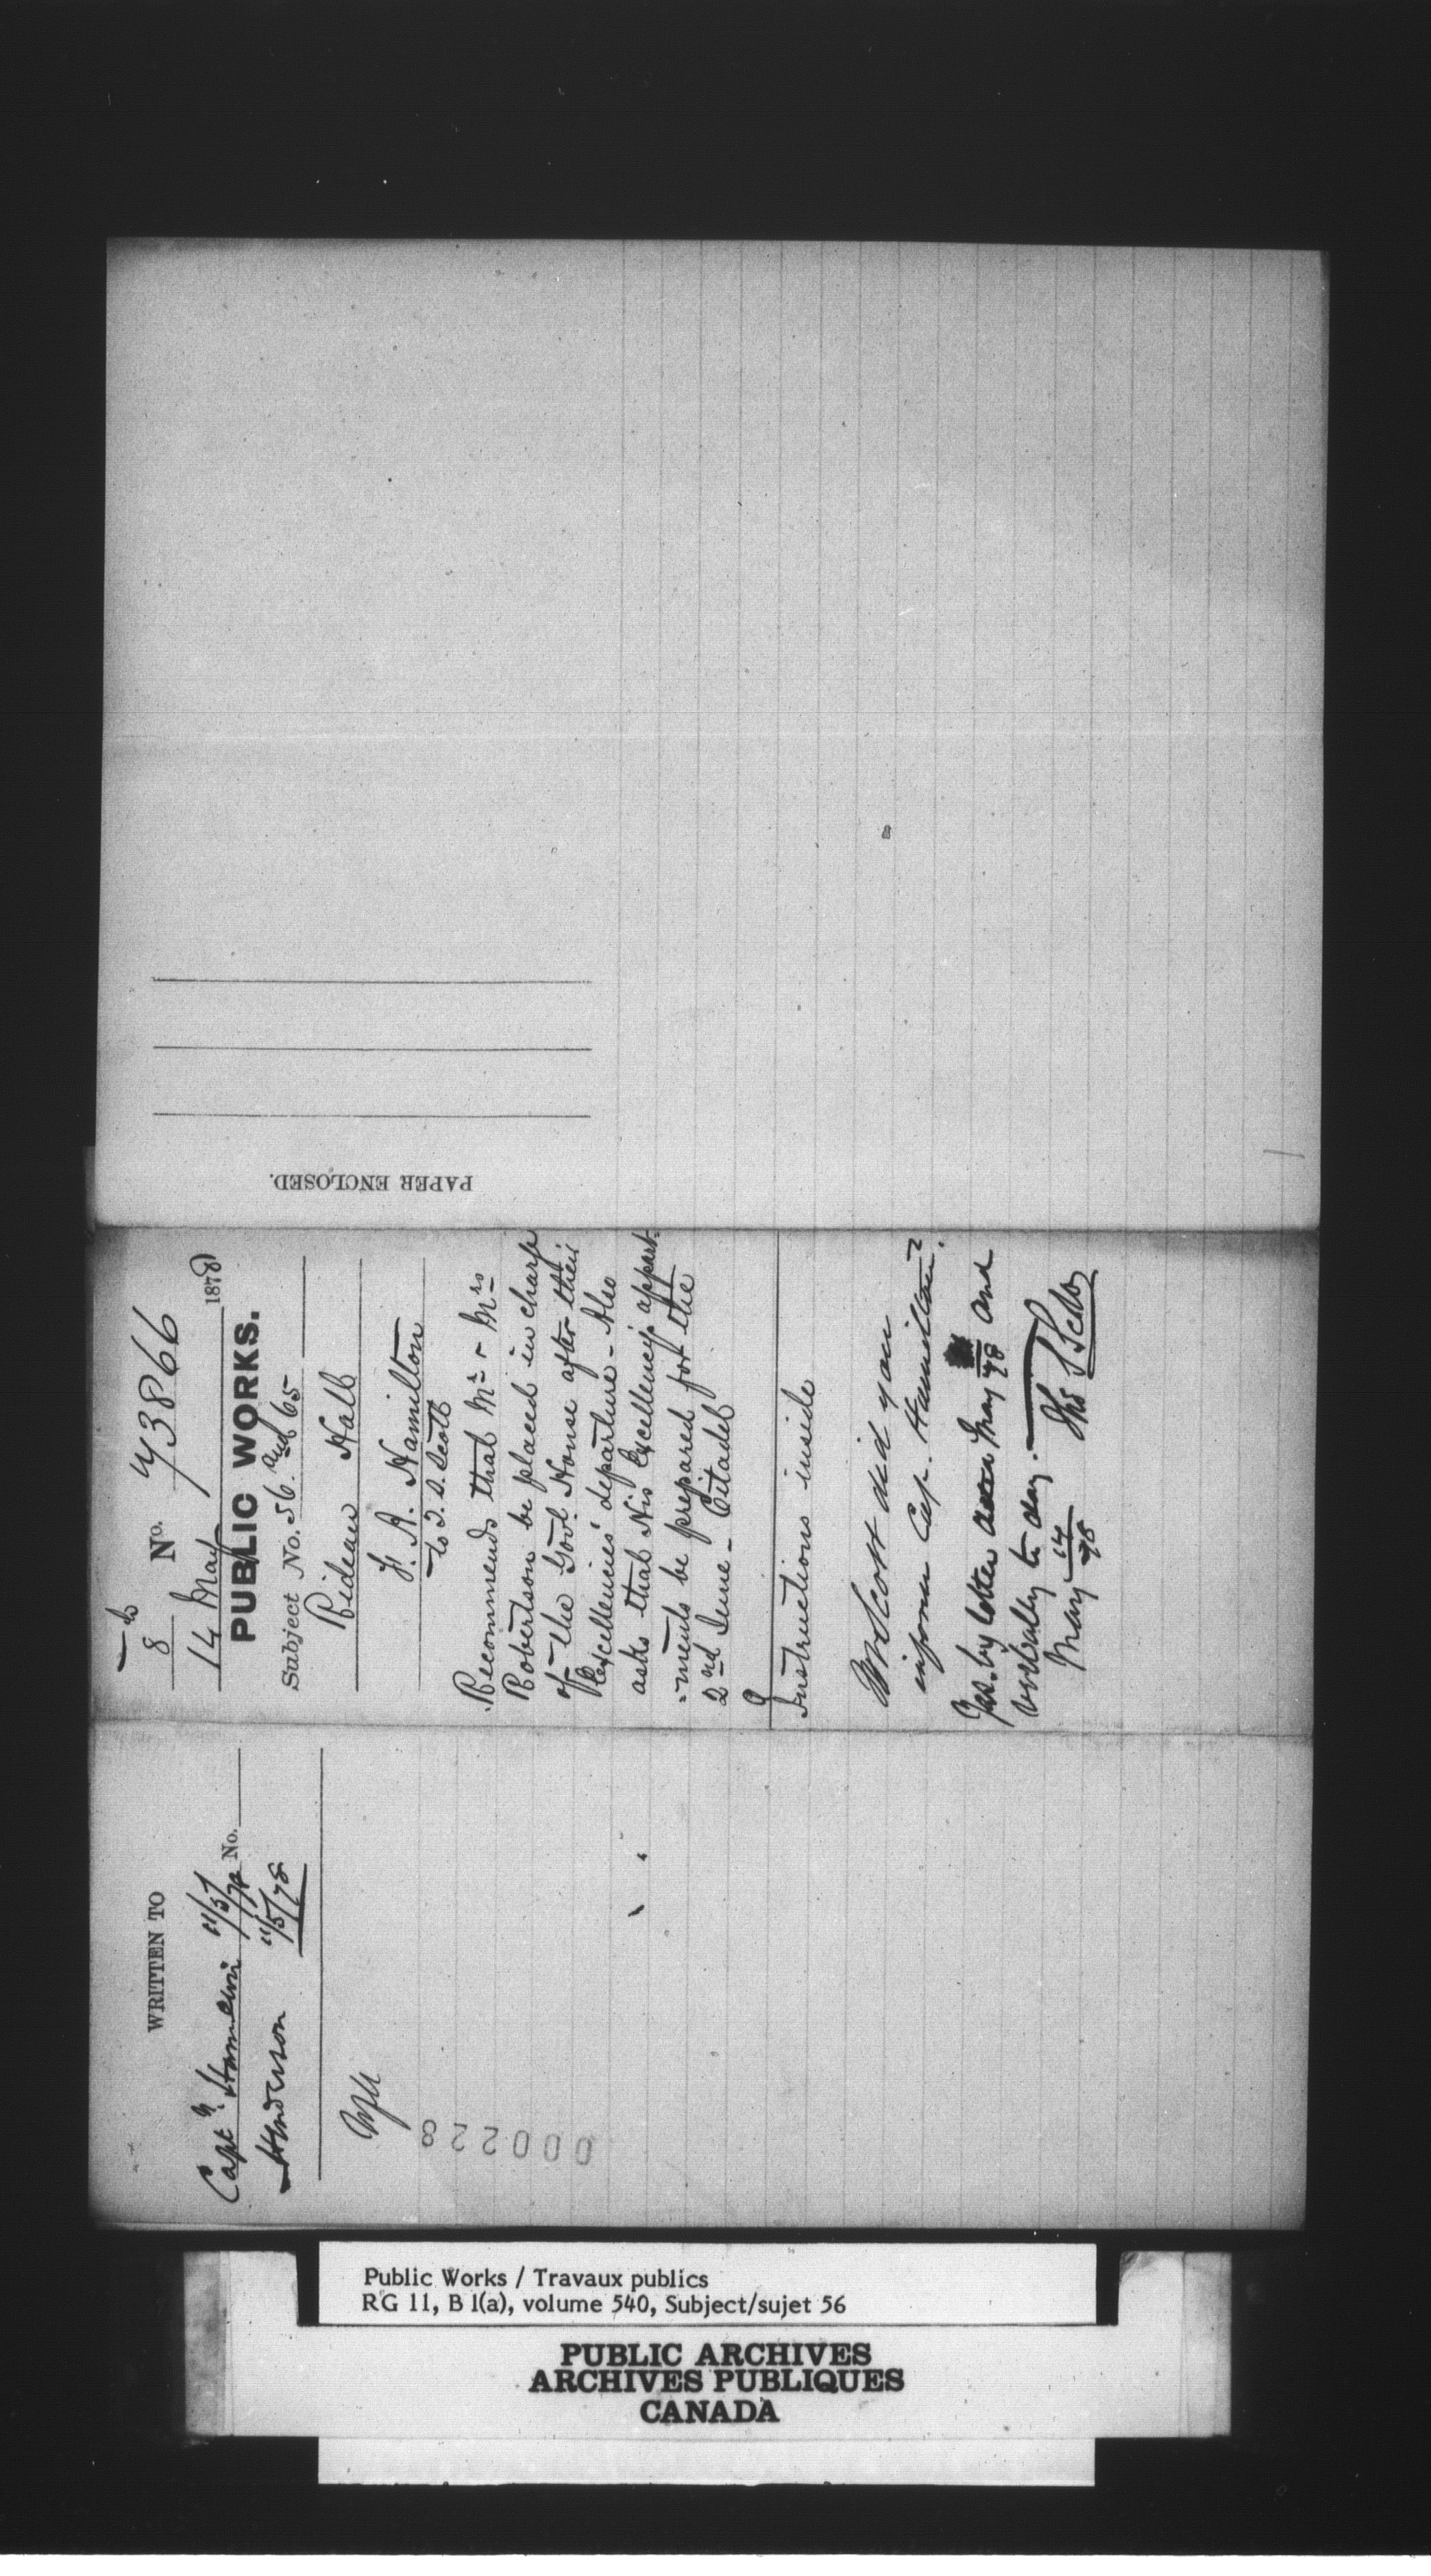 WRITTEN TO
Capt. Hamilton 11/5/78 No.
Henderson 11/5/78
000228
8
No. 73866
14 May 1878
PUBLIC WORKS.
Subject No. 56 and 65
Rideau Hall
F. A. Hamilton
to T. S. Scott
Recommends that Mr & Mrs
Robertson be placed in charge
of the Govt. House after their
Excellencies' departure - Also
asks that His Excellency's appart-
=ments be prepared for the
2nd June - Citadel
Instructions inside
Mr Scott did you
inform Cap. Hamilton?
Yes. by letter May 78 and
verbally to day.
May 14 78 Ths S Scott
PAPER ENCLOSED.
Public Works / Travaux publics
RG 11, B 1(a), volume 540, Subject/sujet 56
PUBLIC ARCHIVES
ARCHIVES PUBLIQUES
CANADA